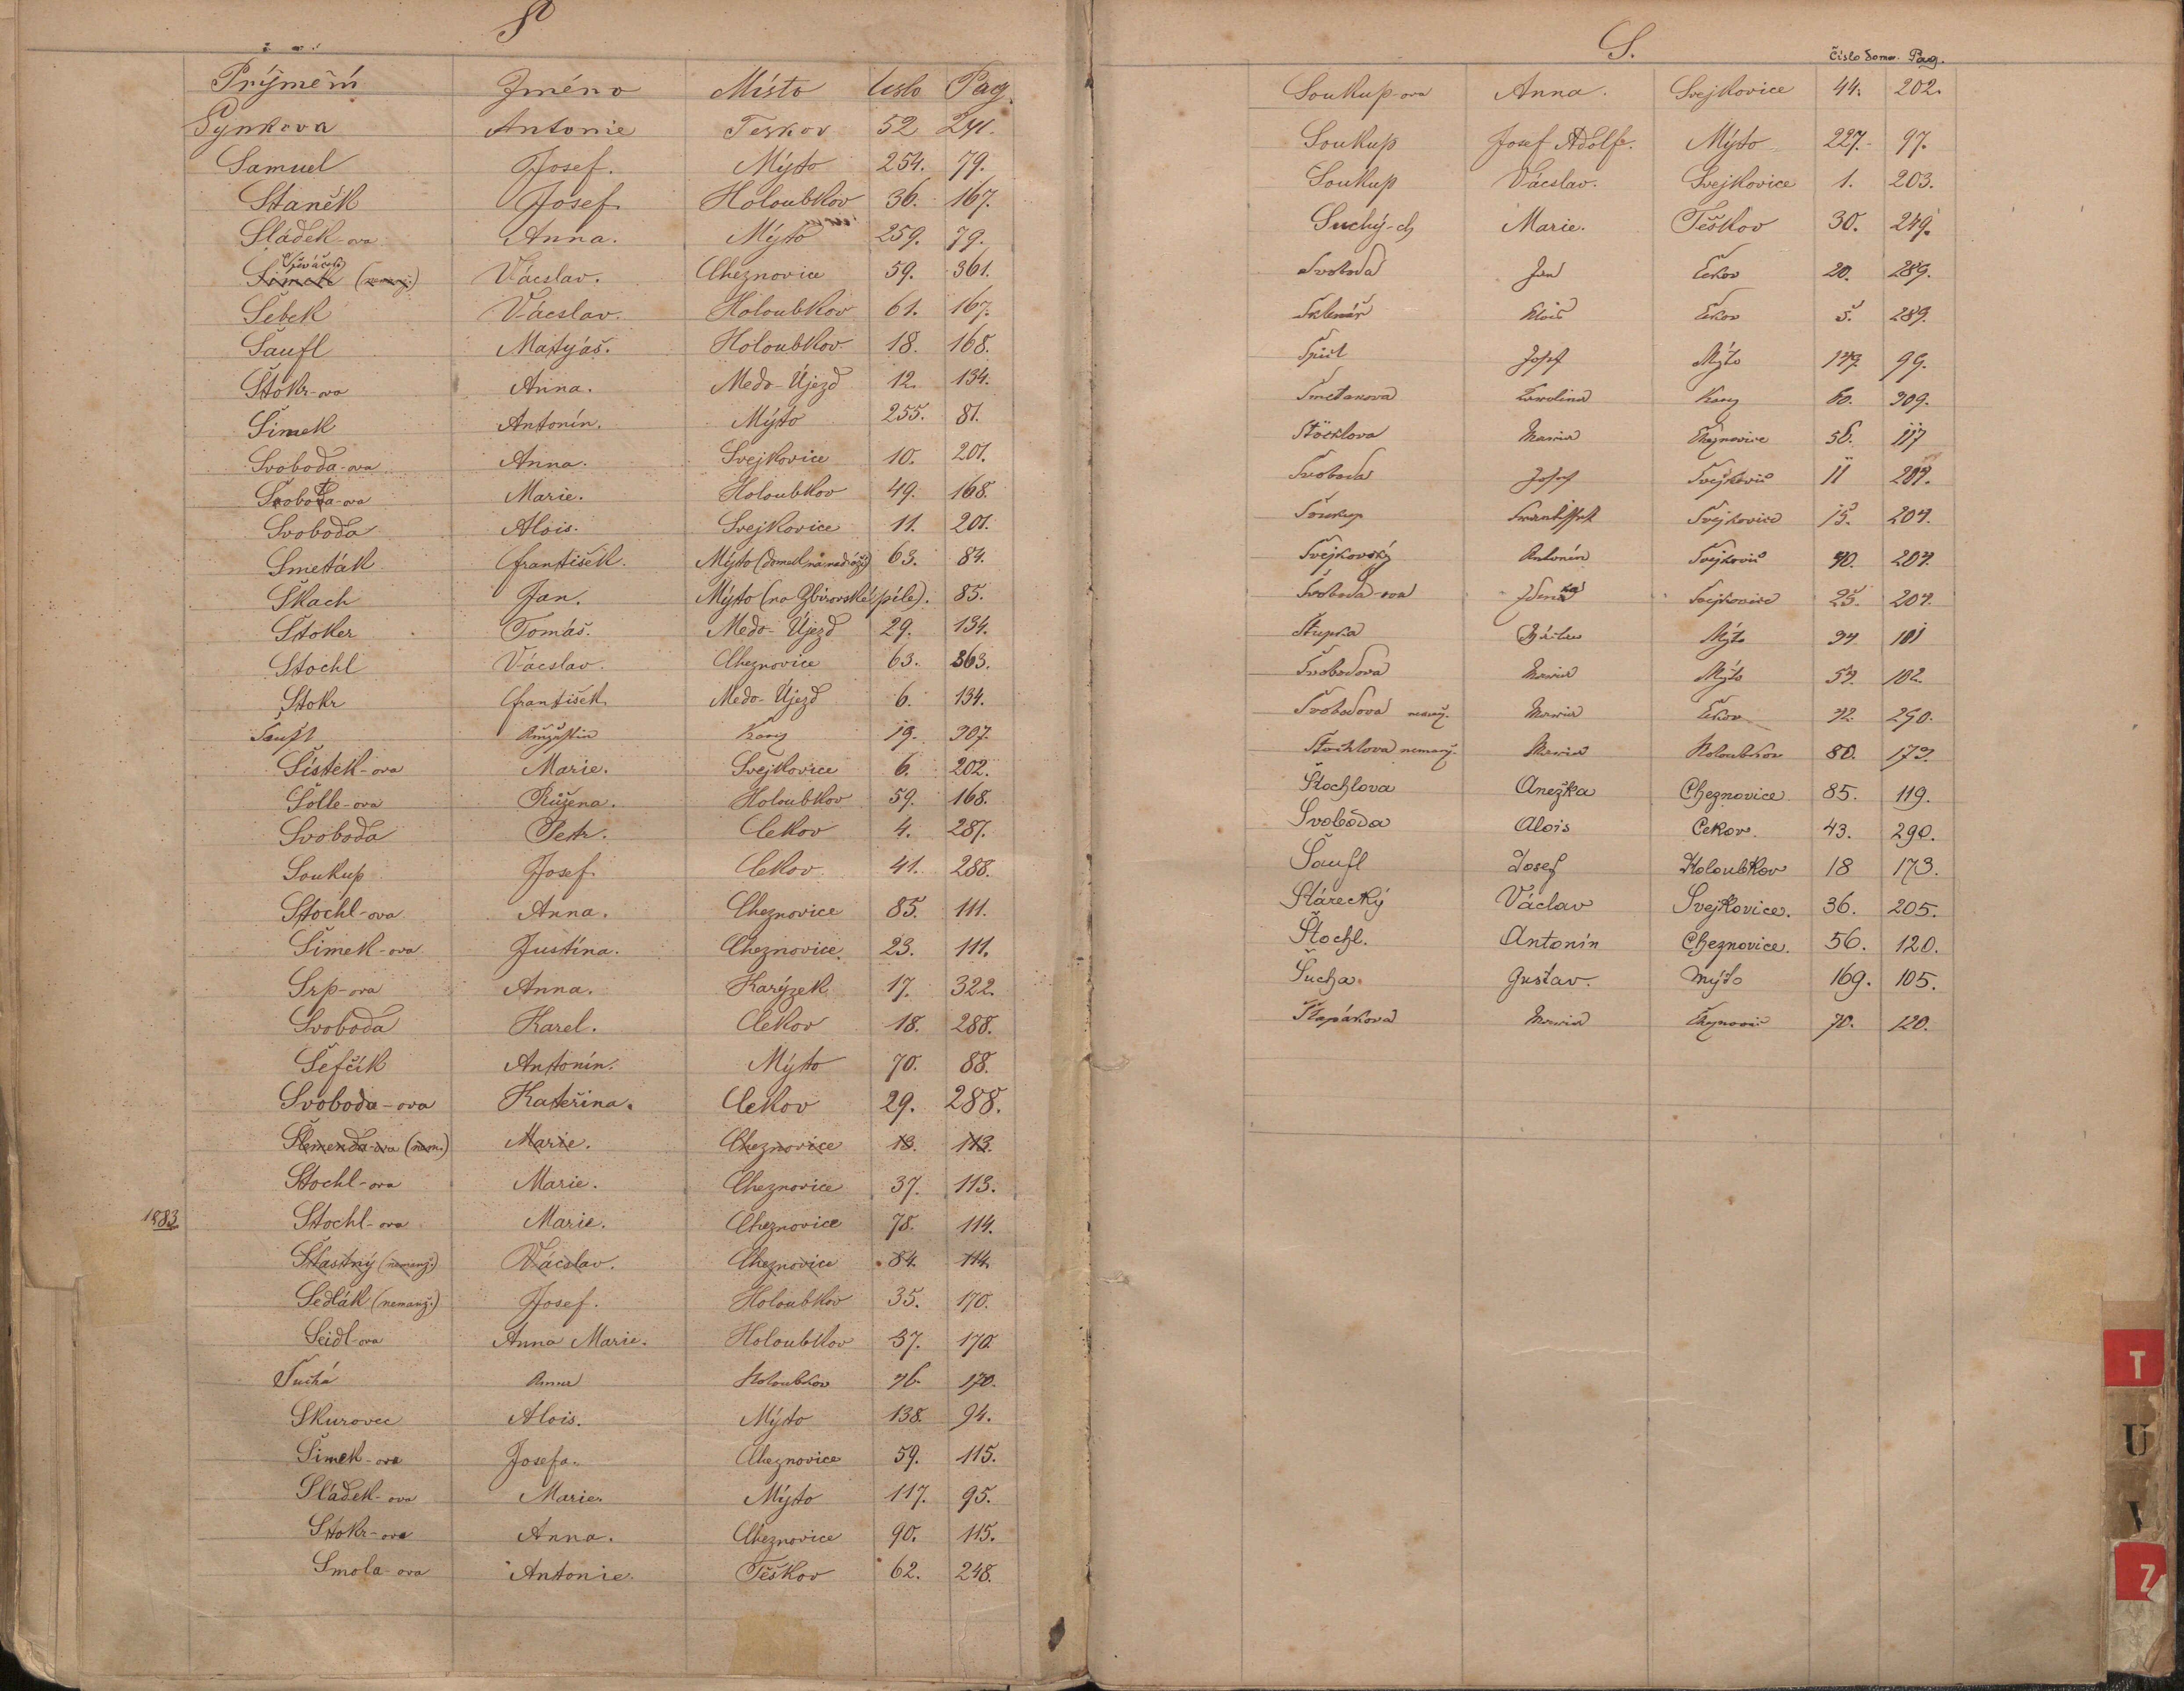 S
Príjmění Jméno Místo Číslo Pag.
Synkova Antonie Teskov 52 241.
Samuel Josef. Mýto 254. 79.
Staněk Josef. Holoubkov 36. 167.
Sládek-ova Anna. Mýto 259. 79.
Spěváček
Šimek (nemanž.) Václav. Cheznovice 59. 361.
Šebek Václav. Holoubkov 61. 167.
Šaufl Matyáš. Holoubkov 18. 168.
Štokr-ova Anna. Medo-Újezd 12. 134.
Šimek Antonín. Mýto 255. 81.
Svoboda-ova Anna. Svejkovice 10. 201.
Svoboda-ova Marie. Holoubkov 49. 168.
Svoboda Alois. Svejkovice 11. 201.
Smeták František. Mýto (domek na nádraží) 63. 84.
Škach Jan. Mýto (na Zbirovské pile). 85.
Stoker Tomáš. Medo-Újezd 29. 134.
Stochl Václav. Cheznovice 63. 363.
Stokr František Medo-Újezd 6. 134.
Šaufl Augustin Kařez 19. 307.
Šístek-ova Marie. Svejkovice 6. 202.
Šolle-ova Růžena. Holoubkov 59. 168.
Svoboda Petr. Cekov 4. 287.
Soukup Josef. Cekov 41. 288.
Stochl-ova Anna. Cheznovice 85. 111.
Šimek-ova Justina. Cheznovice. 23. 111.
Srp-ova Anna. Karýzek 17. 322.
Svoboda Karel. Cekov 18. 288.
Šefčík Antonín. Mýto 70. 88.
Svoboda-ova Kateřina. Cekov 29. 288.
Slemenda-ova (nem.) Marie. Cheznovice 13. 113.
Stochl-ova Marie. Cheznovice 37. 113.
1883 Stochl-ova Marie. Cheznovice 78. 114.
Šťastný (nemanž.) Václav. Cheznovice 84. 114.
Sedlák (nemanž.) Josef. Holoubkov 35. 170.
Seidl-ova Anna Marie. Holoubkov 37. 170.
Suchá Anna Holoubkov 76. 170.
Skurovec Alois. Mýto 138. 94.
Šimek-ova Josefa. Cheznovice 59. 115.
Sládek-ova Marie. Mýto 117. 95.
Stokr-ova Anna. Cheznovice 90. 115.
Smola-ova Antonie. Těškov 62. 248.
S.
Číslo domo. Pag.
Soukup-ova Anna. Svejkovice 44. 202.
Soukup Josef Adolf. Mýto 227. 97.
Soukup Václav. Svejkovice 1. 203.
Suchý-ch Marie. Těškov 30. 249.
Svoboda Jan Čekov 20. 289.
Sklenář Alois Čekov 5. 289.
Josef Mýto 99.
Smetanova Karolina Kařez 60. 309.
Stöcklova Maria Cheznovice 58. 117
Svoboda Josef Svejkovic 11 204.
Soukup František Svejkovice 15. 204.
Svejkovský Antonín Svejkovic 40. 204.
Svoboda-ova Zdenka Svejkovice 25. 204.
Stupka Václav Mýto 34 101
Svobodova Maria Mýto 54. 102.
Svobodova nemanž. Maria Čekov 42. 290.
Stochlova nemanž. Maria Holoubkov 80. 173.
Štochlova Anežka Cheznovice. 85. 119.
Svoboda Alois Cekov. 43. 290.
Šaufl Josef Holoubkov 18 173.
Stárecký Václav Svejkovice. 36. 205.
Štochl. Antonín Cheznovice. 56. 120.
Sucha. Gustav. Mýto 169. 105.
Maria 70. 120.
T
U
V
Z